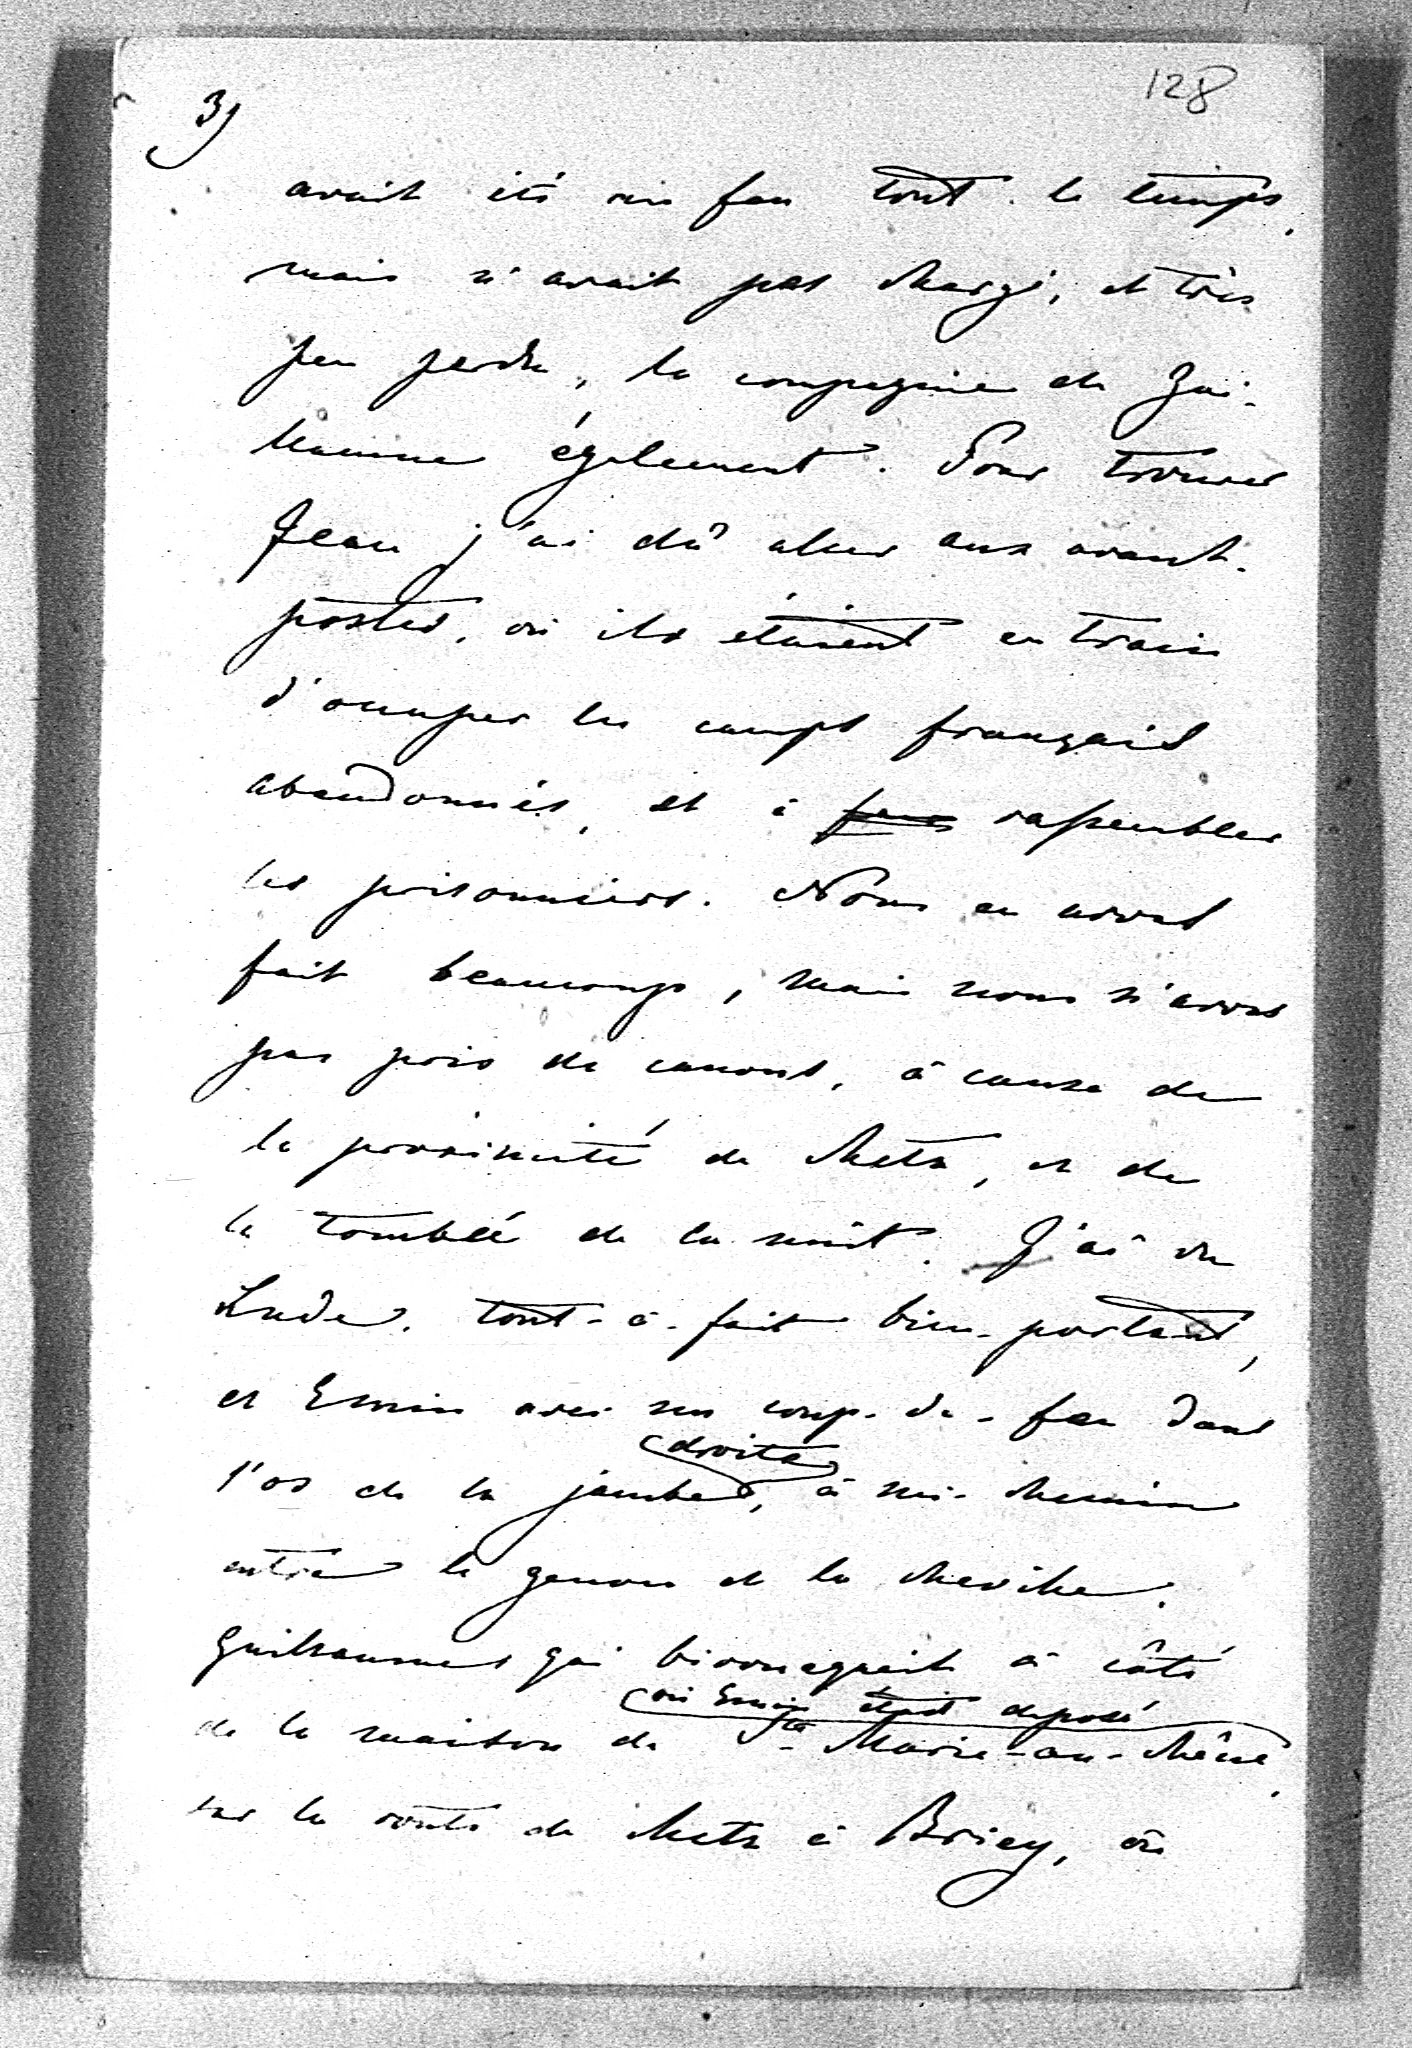 128
3)
avait été au feu tout le temps,
mais n'avait pas chargé, et très
peu perdu, la compagnie de Gui-
llaume également. Pour trouver
Jean j'ai dû aller aux avant-
postes, où ils étaient en train
d'occuper les camps français
abandonnés, et à rassembler
les prisonniers. Nous en avons
fait beaucoup, mais nous n'avons
pas pris de canons, à cause de
la proximité de Metz, et de
la tombée de la nuit. J'ai vu
Lude, tout-à-fait bien-portant,
et Erwin avec un coup-de-feu dans
droite
l'os de la jambe, à mi-chemin
entre le genou et la cheville.
Guillaume qui bivouaquait à côté
où Erwin était déposé
de la maison de Ste Marie-au-Chêne,
sur la route de Metz à Briey, où